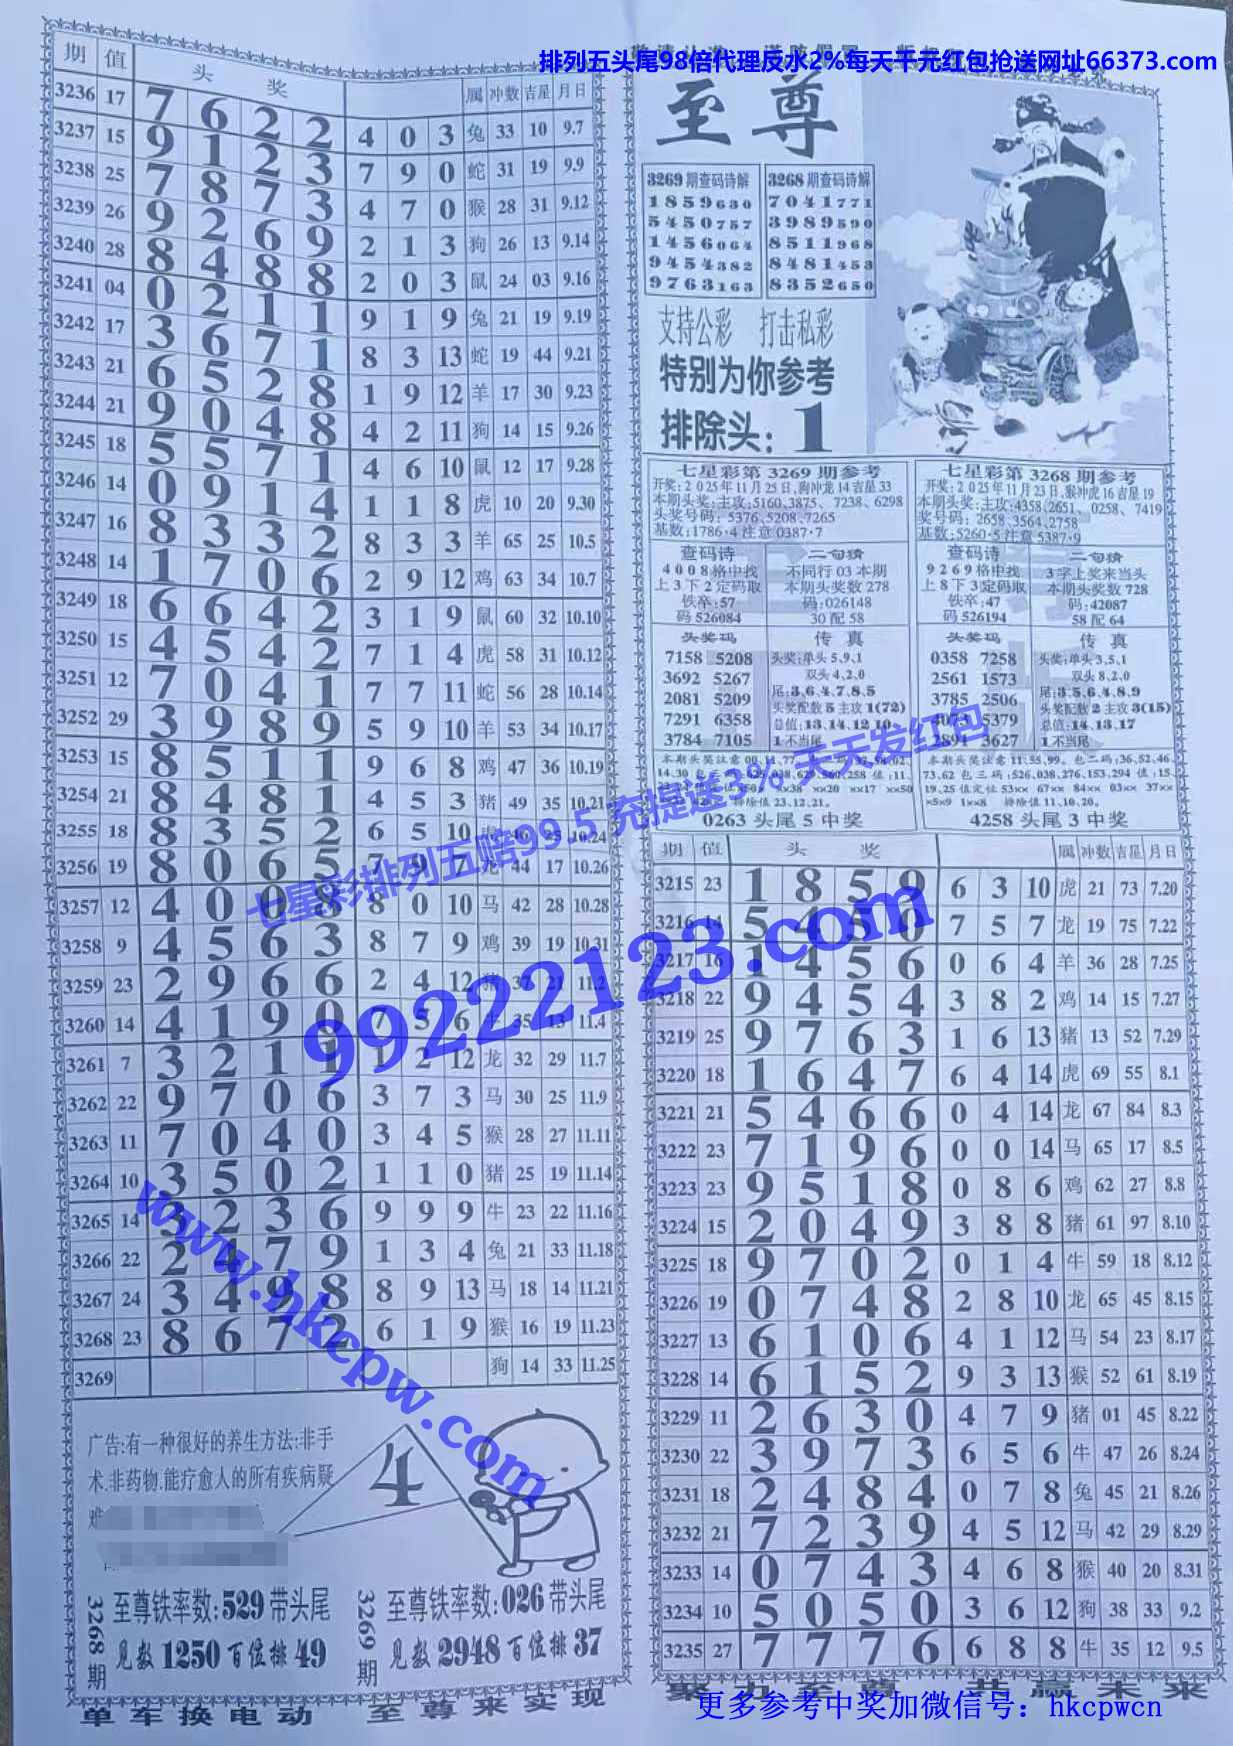 排列五头尾98倍代理反水2%每天千元红包抢送网址66373.com
期 值 头 奖 属 冲数 吉星 月日
3236 17 7 6 2 2 4 0 3 兔 33 10 9.7
3237 15 9 1 2 3 7 9 0 蛇 31 19 9.9
3238 25 7 8 7 3 4 7 0 猴 28 31 9.12
3239 26 9 2 6 9 2 1 3 狗 26 13 9.14
3240 28 8 4 8 8 2 0 3 鼠 24 03 9.16
3241 04 0 2 1 1 9 1 9 兔 21 19 9.19
3242 17 3 6 7 1 8 3 13 蛇 19 44 9.21
3243 21 6 5 2 8 1 9 12 羊 17 30 9.23
3244 21 9 0 4 8 4 2 11 狗 14 15 9.26
3245 18 5 5 7 1 4 6 10 鼠 12 17 9.28
3246 14 0 9 1 4 1 1 8 虎 10 20 9.30
3247 16 8 3 3 2 8 3 3 羊 65 25 10.5
3248 14 1 7 0 6 2 9 12 鸡 63 34 10.7
3249 18 6 6 4 2 3 1 9 鼠 60 32 10.10
3250 15 4 5 4 2 7 1 4 虎 58 31 10.12
3251 12 7 0 4 1 7 7 11 蛇 56 28 10.14
3252 29 3 9 8 9 5 9 10 羊 53 34 10.17
3253 15 8 5 1 1 9 6 8 鸡 47 36 10.19
3254 21 8 4 8 1 4 5 3 猪 49 35 10.21
3255 18 8 3 5 2 6 5 10 46 25 10.24
3256 19 8 0 6 5 7 9 7 龙 44 17 10.26
3257 12 4 0 0 8 8 0 10 马 42 28 10.28
3258 9 4 5 6 3 8 7 9 鸡 39 19 10.31
3259 23 2 9 6 6 2 4 12 猪 37 21 11.2
3260 14 4 1 9 0 7 5 6 35 13 11.4
3261 7 3 2 1 1 1 2 12 龙 32 29 11.7
3262 22 9 7 0 6 3 7 3 马 30 25 11.9
3263 11 7 0 4 0 3 4 5 猴 28 27 11.11
3264 10 3 5 0 2 1 1 0 猪 25 19 11.14
3265 14 3 2 3 6 9 9 9 牛 23 22 11.16
3266 22 2 4 7 9 1 3 4 兔 21 33 11.18
3267 24 3 4 9 8 8 9 13 马 18 14 11.21
3268 23 8 6 7 2 6 1 9 猴 16 19 11.23
3269 狗 14 33 11.25
广告:有一种很好的养生方法:非手
术.非药物.能疗愈人的所有疾病疑
难
4
3268期
至尊铁率数:529带头尾
见数1250百位排49
3269期
至尊铁率数:026带头尾
见数2948百位排37
单车换电动 至尊来实现
至尊
3269期查码诗解
1859630
5450757
1456064
9454382
9763163
3268期查码诗解
7041771
3989590
8511968
8481453
8352650
支持公彩 打击私彩
特别为你参考
排除头:1
七星彩第3269期参考
开奖:2025年11月25日,狗冲龙14吉星33
本期头奖:主攻:5160,3875、7238、6298
头奖号码:5376,5208,7265
基数:1786·4注意0387·7
查码诗
4008格中找
上3下2定码取
铁卒:57
码526084
二句猜
不同行03本期
本期头奖数278
码:026148
30配58
头奖码
7158 5208
3692 5267
2081 5209
7291 6358
3784 7105
传真
头奖:单头5,9,1
双头4,2,0
尾:3,6,4,7,8,5
头奖配数5主攻1(72)
总值:13,14,12,10
1不当尾
0263头尾5中奖
七星彩第3268期参考
开奖:2025年11月23日,猴冲虎16吉星19
本期头奖:主攻:4358,2651、0258、7419
奖号码:2658,3564,2758
基数:5260·5注意5387·9
查码诗
9269格中找
上8下3定码取
铁卒:47
码526194
二句猜
3字上奖来当头
本期头奖数728
码:42087
58配64
头奖码
0358 7258
2561 1573
3785 2506
4073 5379
2891 3627
传真
头奖:单头3,5,1
双头8,2,0
尾:3,5,6,4,8,9
头奖配数2主攻3(15)
总值:14,13,17
1不当尾
本期头奖注意11,55,99。包二码:36,52,46
73,62包三码:526,038,276,153,294值:15,
19,25值定位53×× 67×× 84×× 03×× 37××
×5×9 1××8 排除值11,10,20。
4258头尾3中奖
期 值 头 奖 属 冲数 吉星 月日
3215 23 1 8 5 9 6 3 10 虎 21 73 7.20
3216 14 5 4 5 0 7 5 7 龙 19 75 7.22
3217 16 1 4 5 6 0 6 4 羊 36 28 7.25
3218 22 9 4 5 4 3 8 2 鸡 14 15 7.27
3219 25 9 7 6 3 1 6 13 猪 13 52 7.29
3220 18 1 6 4 7 6 4 14 虎 69 55 8.1
3221 21 5 4 6 6 0 4 14 龙 67 84 8.3
3222 23 7 1 9 6 0 0 14 马 65 17 8.5
3223 23 9 5 1 8 0 8 6 鸡 62 27 8.8
3224 15 2 0 4 9 3 8 8 猪 61 97 8.10
3225 18 9 7 0 2 0 1 4 牛 59 18 8.12
3226 19 0 7 4 8 2 8 10 龙 65 45 8.15
3227 13 6 1 0 6 4 1 12 马 54 23 8.17
3228 14 6 1 5 2 9 3 13 猴 52 61 8.19
3229 11 2 6 3 0 4 7 9 猪 01 45 8.22
3230 22 3 9 7 3 6 5 6 牛 47 26 8.24
3231 18 2 4 8 4 0 7 8 兔 45 21 8.26
3232 21 7 2 3 9 4 5 12 马 42 29 8.29
3233 14 0 7 4 3 4 6 8 猴 40 20 8.31
3234 10 5 0 5 0 3 6 12 狗 38 33 9.2
3235 27 7 7 7 6 6 8 8 牛 35 12 9.5
聚力至尊 共赢未来
七星彩排列五赔99.5 充提送3% 天天发红包
99222123.com
www.hkcpw.com
更多参考中奖加微信号：hkcpwcn